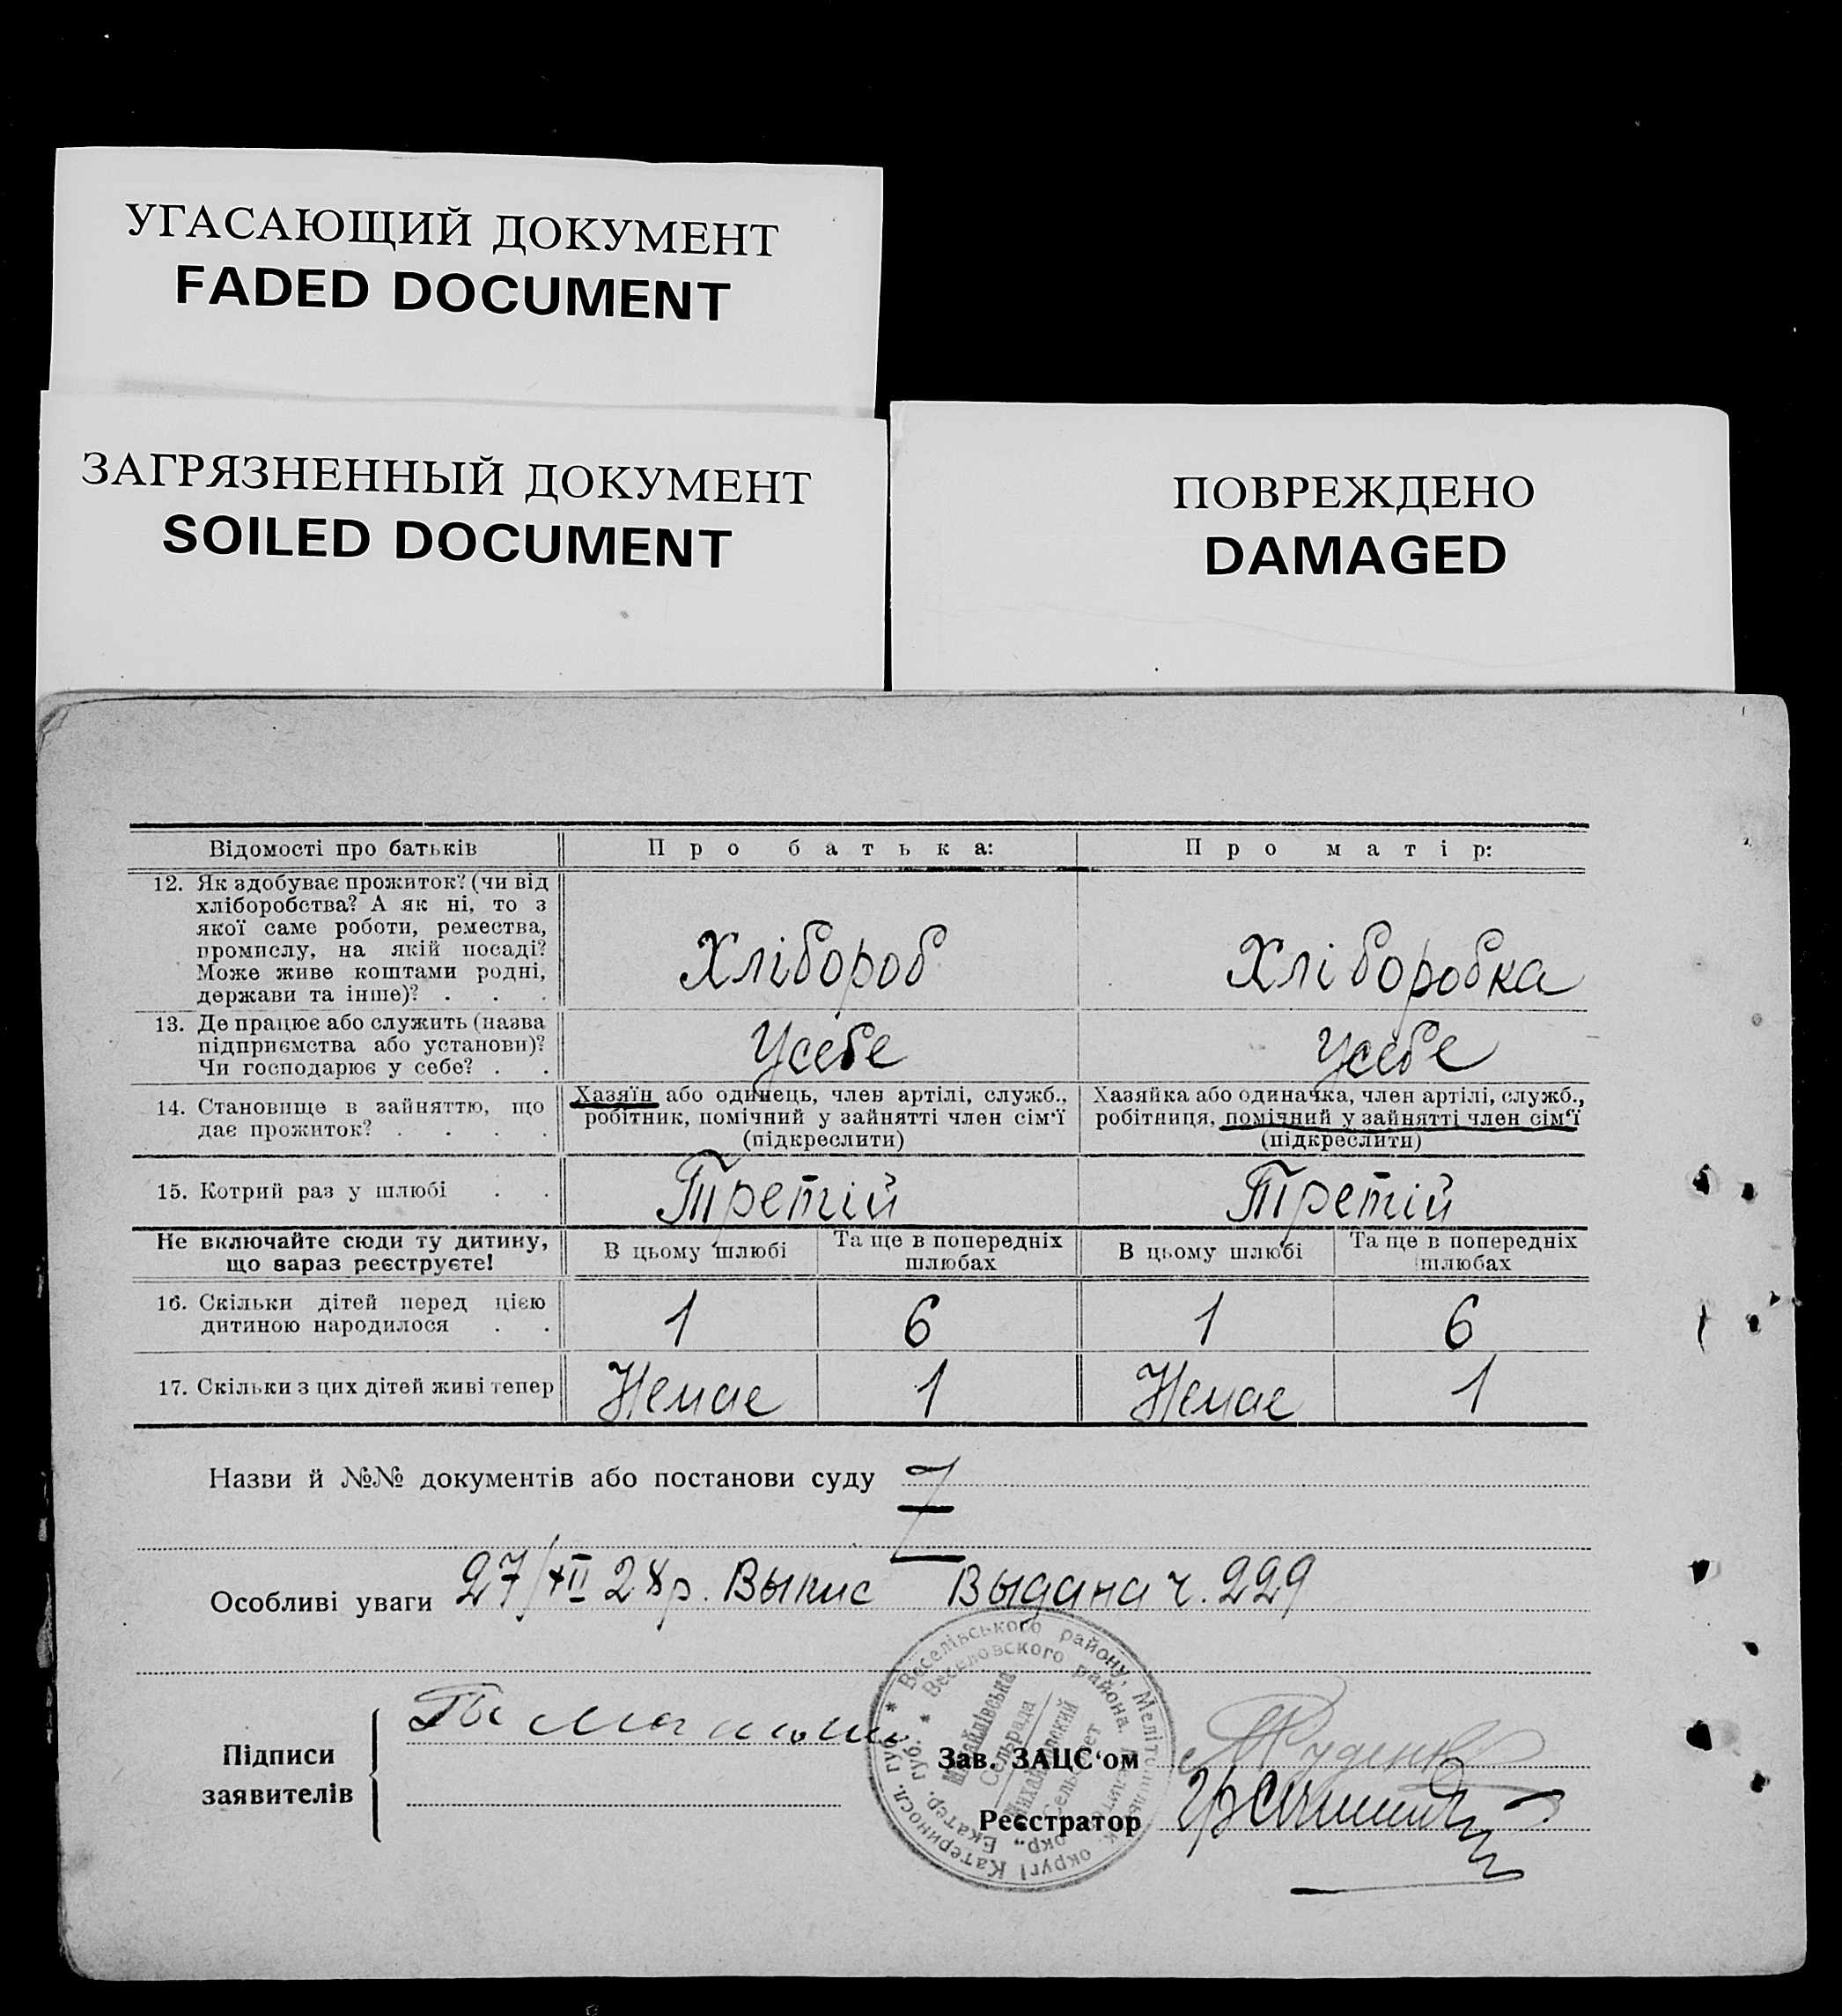 УГАСАЮЩИЙ ДОКУМЕНТ
FADED DOCUMENT
ЗАГРЯЗНЕННЫЙ ДОКУМЕНТ
SOILED DOCUMENT
ПОВРЕЖДЕНО
DAMAGED
Відомості про батьків
Про батька:
Про матір:
12. Як здобуває прожиток? (чи від
хліборобства? А як ні, то з
якої саме роботи, ремества,
промислу, на якій посаді?
Може живе коштами родні,
держави та інше)? . . .
Хлібороб
Хліборобка
13. Де працює або служить (назва
підприємства або установи)?
Чи господарює у себе? . .
Усебе
Усебе
14. Становище в зайняттю, що
дає прожиток? . . . .
Хазяїн або одинець, член артілі, служб.,
робітник, помічний у зайнятті член сім'ї
(підкреслити)
Хазяйка або одиначка, член артілі, служб.,
робітниця, помічний у зайнятті член сім'ї
(підкреслити)
15. Котрий раз у шлюбі . .
Третій
Третій
Не включайте сюди ту дитину,
що зараз реєструєте!
В цьому шлюбі
Та ще в попередніх
шлюбах
В цьому шлюбі
Та ще в попередніх
шлюбах
16. Скільки дітей перед цією
дитиною народилося . .
1
6
1
6
17. Скільки з цих дітей живі тепер
Немає
1
Немає
1
Назви й №№ документів або постанови суду
Особливі уваги 27/XII 28р. Выпис Выдана ч. 229
Веселівського району, Мелітопільськ. округі Катериносл. губ. *
Веселовского района, Мелитоп. окр., Екатер. губ. *
Михайлівська
Сельрада
Михайловский
Сельсовет
Підписи
заявителів
Зав. ЗАЦС'ом
Реєстратор